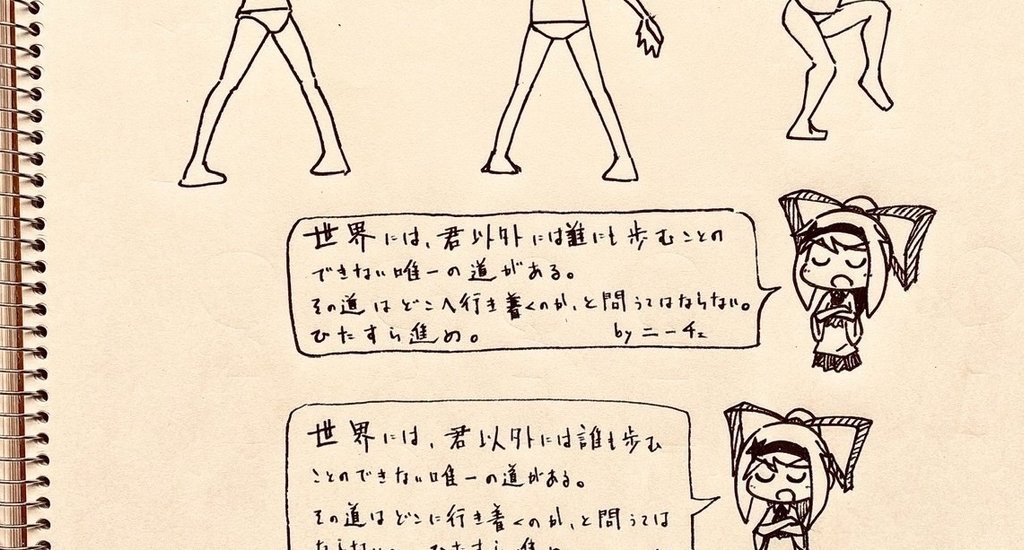 世界には、君以外には誰にも歩むことの
できない唯一の道がある。
その道はどこへ行き着くのか、と問うてはならない。
ひたすら進め。
by ニーチェ
世界には、君以外には誰も歩む
ことのできない唯一の道がある。
その道はどこに行き着くのか、と問うては
ならない。ひたすら進め